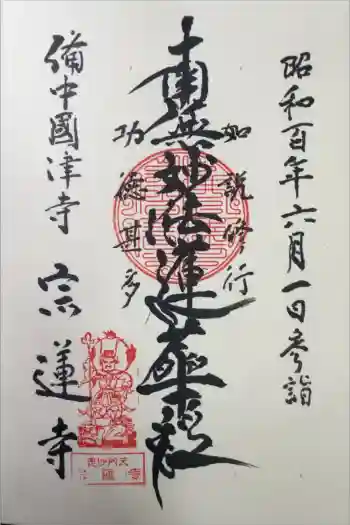 昭和百年六月一日参詣
如説修行
南無妙法蓮華経
功徳甚多
備中國津寺
宗蓮寺